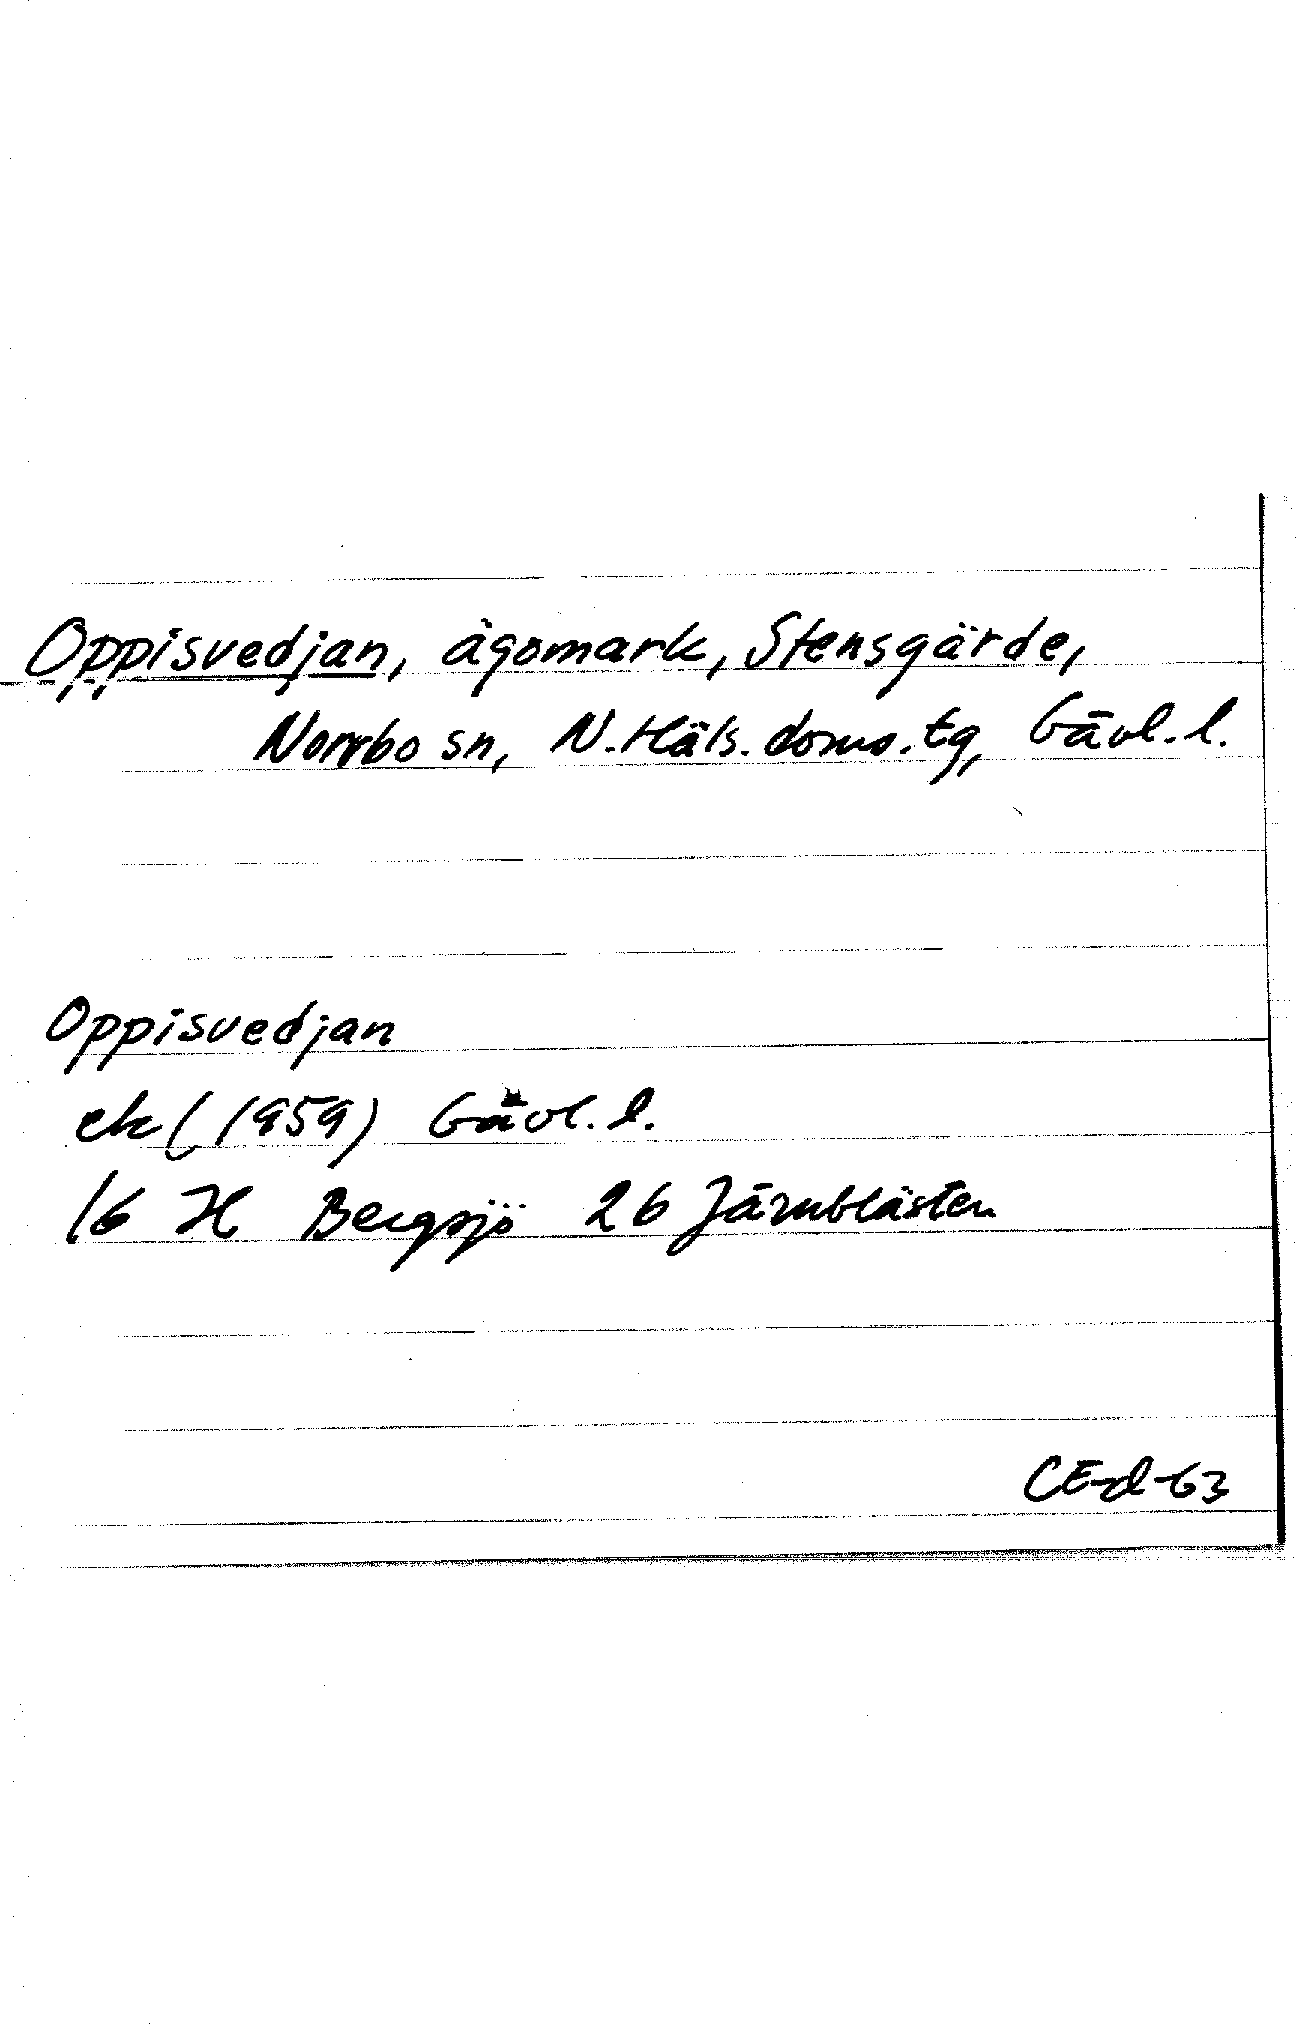 Oppisvedjan, ägomark, Stensgärde,
Norrbo sn, N. Häls. doms. tg, Gävl. l.
Oppisvedjan
ek (1959) Gävl. l.
16 H Bergsjö 2b Järnblästen
CEd-63